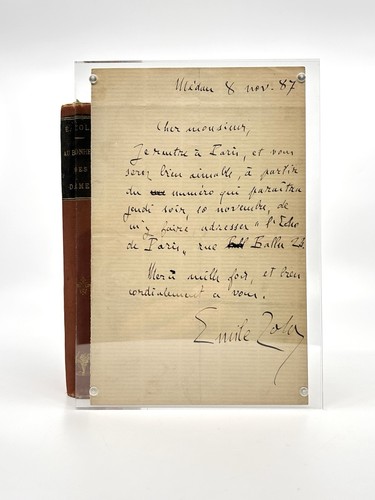 Médan 8 nov. 87
Cher monsieur,
Je rentre à Paris, et vous
serez bien aimable, à partir
du numéro qui paraîtra
jeudi soir, 10 novembre, de
m'y faire adresser "l'Echo
de Paris, rue Ballu
Merci mille fois, et bien
cordialement à vous.
Emile Zola
E. ZOLA
AU BONHEUR
DES
DAMES